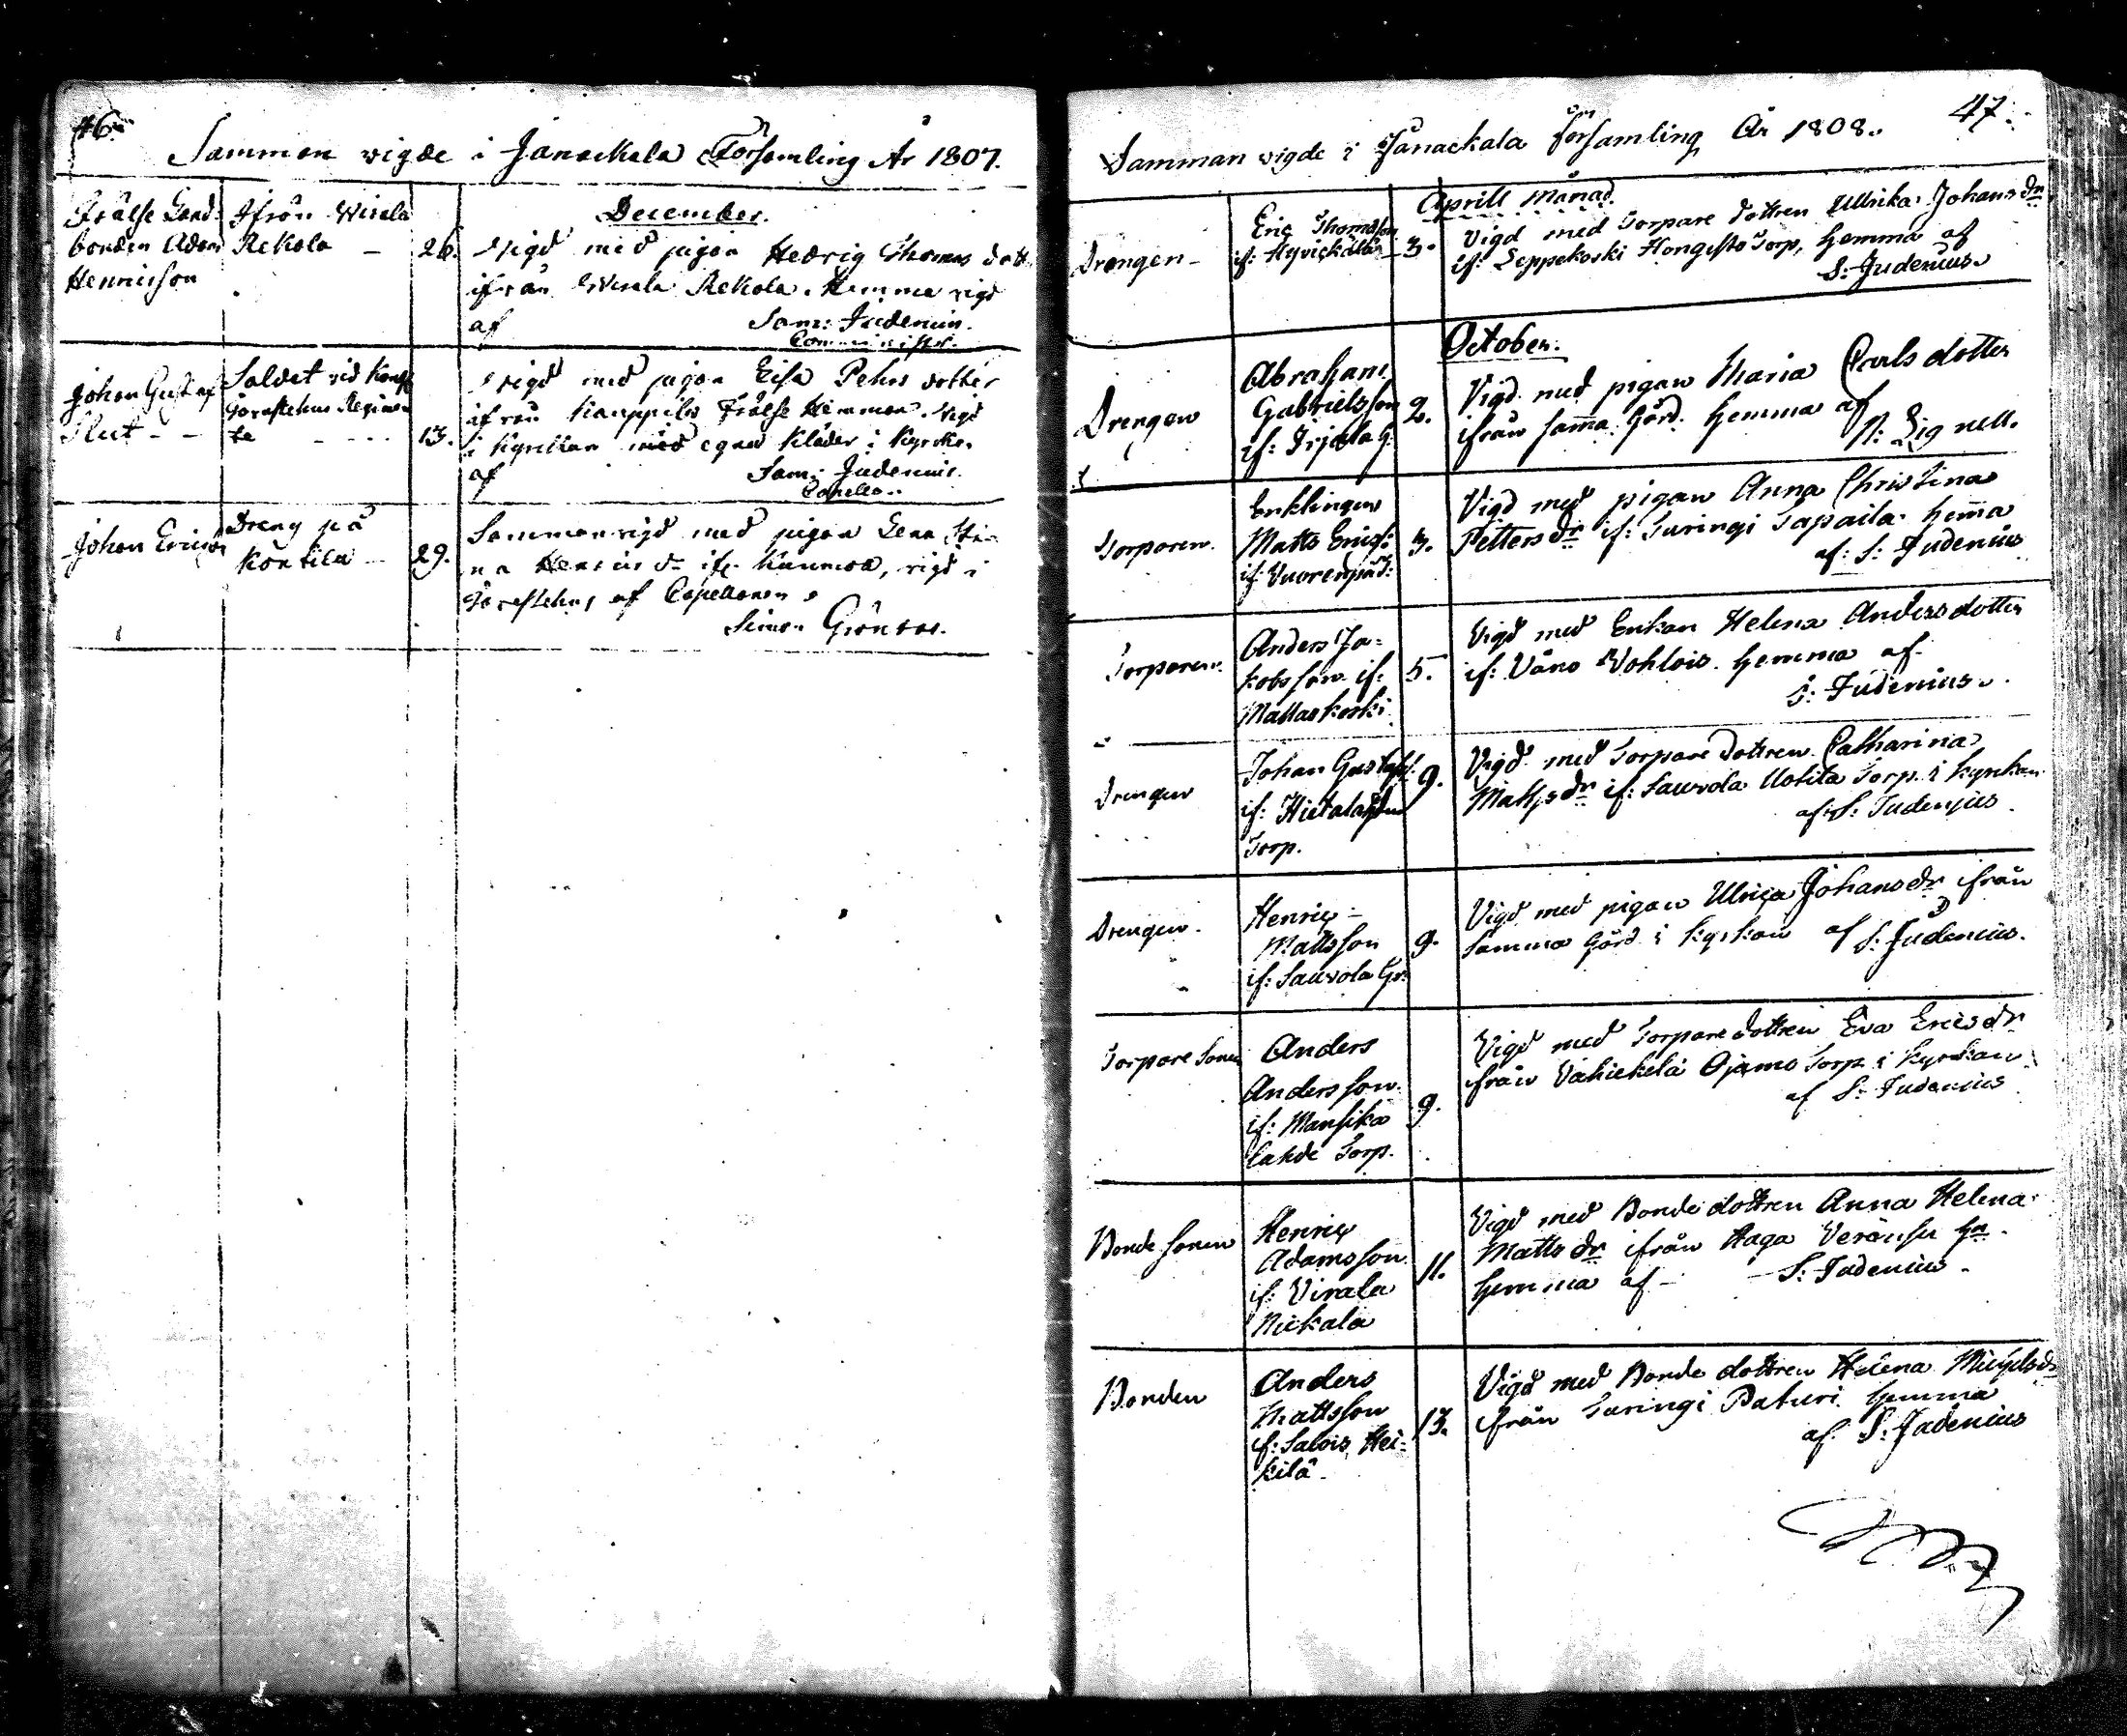 46.
Samman vigde i Janackala Församling År 1807.
December.
Frälse Land-
bonden Adam
Henricsson
Ifrån Wirala
Rekola
26.
Vigd med pigan Hedvig Thomas dott
ifrån Wirala Rekola. Hemma vigd
af Sam: Judenius.
Comminister.
Johan Gustaf
Slut
Soldat vid
Tavastehus Regemen
te
13.
Vigd med pigan Lisa Pehrs dotter
ifrån Kauppila Frälse Hemman. Vigd
i Kyrckan med egna Kläder i Kyrckan
af Sam: Judenius.
Capella..
Johan Ericson
Dreng på
Kontila
29.
Sammanvigd med pigan Lena Sti-
na vigd i
Tavastehus af Capellanen
Simon Grönroos.
47.
Samman vigde i Janackala Församling År 1808.
Aprill Månad.
Drengen
Eric Thomsson
if: Hyvickälä
3.
Vigd med Torpare dottren Ullrika Johans dr
if: Leppekoski Hongisto Torp, hemma af
S: Judenius.
October.
Drengen
Abraham
Gabrielsson
if: Irjala G:
2.
Vigd med pigan Maria Carls dotter
ifrån samma Gård. hemma af
N: Lignell.
Torparen
Enklingen
Matts Erics:
if: Vuorenpää:
3.
Vigd med pigan Anna Christina
Petters dr if: Turingi Tapaila hemma
af: S: Judenius
Torparen
Anders Ja-
kobsson if:
Mallaskoski
5.
Vigd med Enkan Helena Andersdotter
if: Våno Wohlois. hemma af
S: Judenius.
Drengen
Johan Gustafs:
if:
Torp.
9.
Vigd med Torpare dottren Catharina
Matts dr if: Sauvola Uotila Torp. i Kyrckan
af S: Judenius.
Drengen
Henric
Mattsson
if: Sauvola Gr:
9.
Vigd med pigan Ulrica Johans dr ifrån
samma Gård i Kyrkan af S: Judenius.
Torpare Sonen
Anders
Andersson
if: Mansika
lahde Torp.
9.
Vigd med Torpare dottren Eva Erics dr
ifrån Vahickelä Ojamo Torp i Kyrckan
af S: Judenius
Bonde sonen
Henric
Adamsson
if: Virala
Nickala
11.
Vigd med Bonde dottren Anna Helena
Matts dr ifrån Haga
hemma af S: Judenius.
Bonden
Anders
Mattsson
if: Salois, Hei-
kilä
13.
Vigd med Bonde dottren Helena Michelsdr
ifrån Turingi Paturi hemma
af S: Judenius